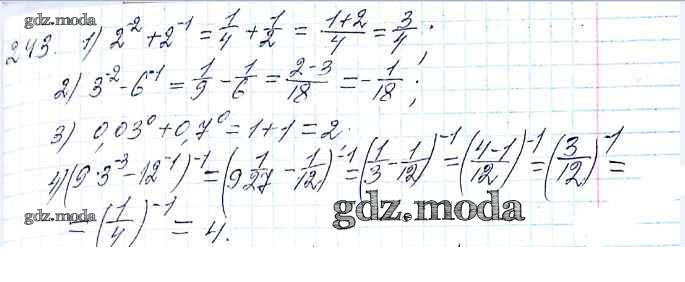 gdz.moda
243. 1) 2^-2 + 2^-1 = 1/4 + 1/2 = (1+2)/4 = 3/4;
2) 3^-2 - 6^-1 = 1/9 - 1/6 = (2-3)/18 = -1/18;
3) 0,03^0 + 0,7^0 = 1 + 1 = 2.
4) (9·3^-3 - 12^-1)^-1 = (9 1/27 - 1/12)^-1 = (1/3 - 1/12)^-1 = ((4-1)/12)^-1 = (3/12)^-1 =
gdz.moda
= (1/4)^-1 = 4.
gdz.moda